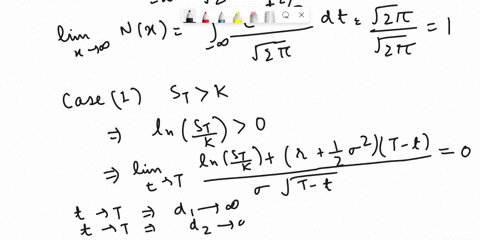 lim x→∞ N(x) = ∫ -∞ / √2π dt = √2π / √2π = 1
Case (1) S_T > K
⇒ ln(S_T/K) > 0
⇒ lim t→T (ln(S_T/K) + (r + 1/2 σ²)(T-t)) / (σ √T-t) = 0
t → T ⇒ d₁ → ∞
t → T ⇒ d₂ →